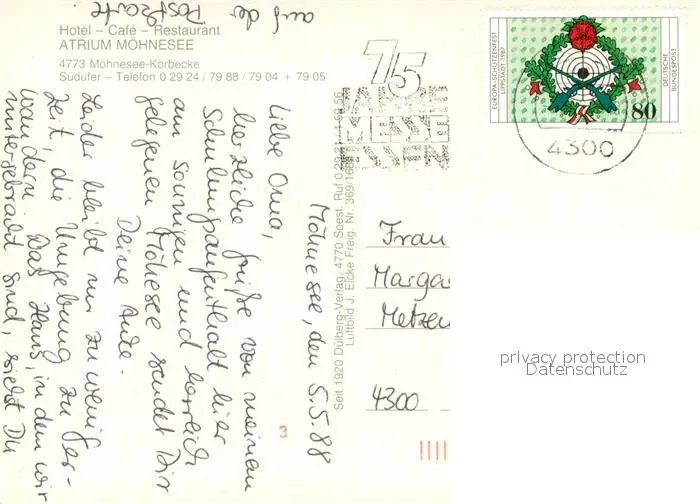 Hotel – Café – Restaurant
ATRIUM MÖHNESEE
4773 Möhnesee-Körbecke
Südufer – Telefon 0 29 24 / 79 88 / 79 04 + 79 05
Möhnesee, den 5.5.88
Liebe Oma,
herzliche Grüße von meinem
Schulungsaufenthalt hier
am sonnigen und herrlich
gelegenen Möhnesee sendet Dir
Deine Anke.
Leider bleibt nur zu wenig
Zeit, die Umgebung zu er-
wandern. Das Haus, in dem wir
untergebracht sind, siehst Du
auf der
Postkarte.
Seit 1920 Dülberg-Verlag, 4770 Soest, Ruf 0 29 21
Luftbild J. Eicke Freig. Nr. 369/168
75
JAHRE
MESSE
ESSEN
4300
EUROPA-SCHÜTZENFEST
LIPPSTADT 1987
DEUTSCHE
BUNDESPOST
80
Frau
Marga
Metzen
4300
3
privacy protection
Datenschutz